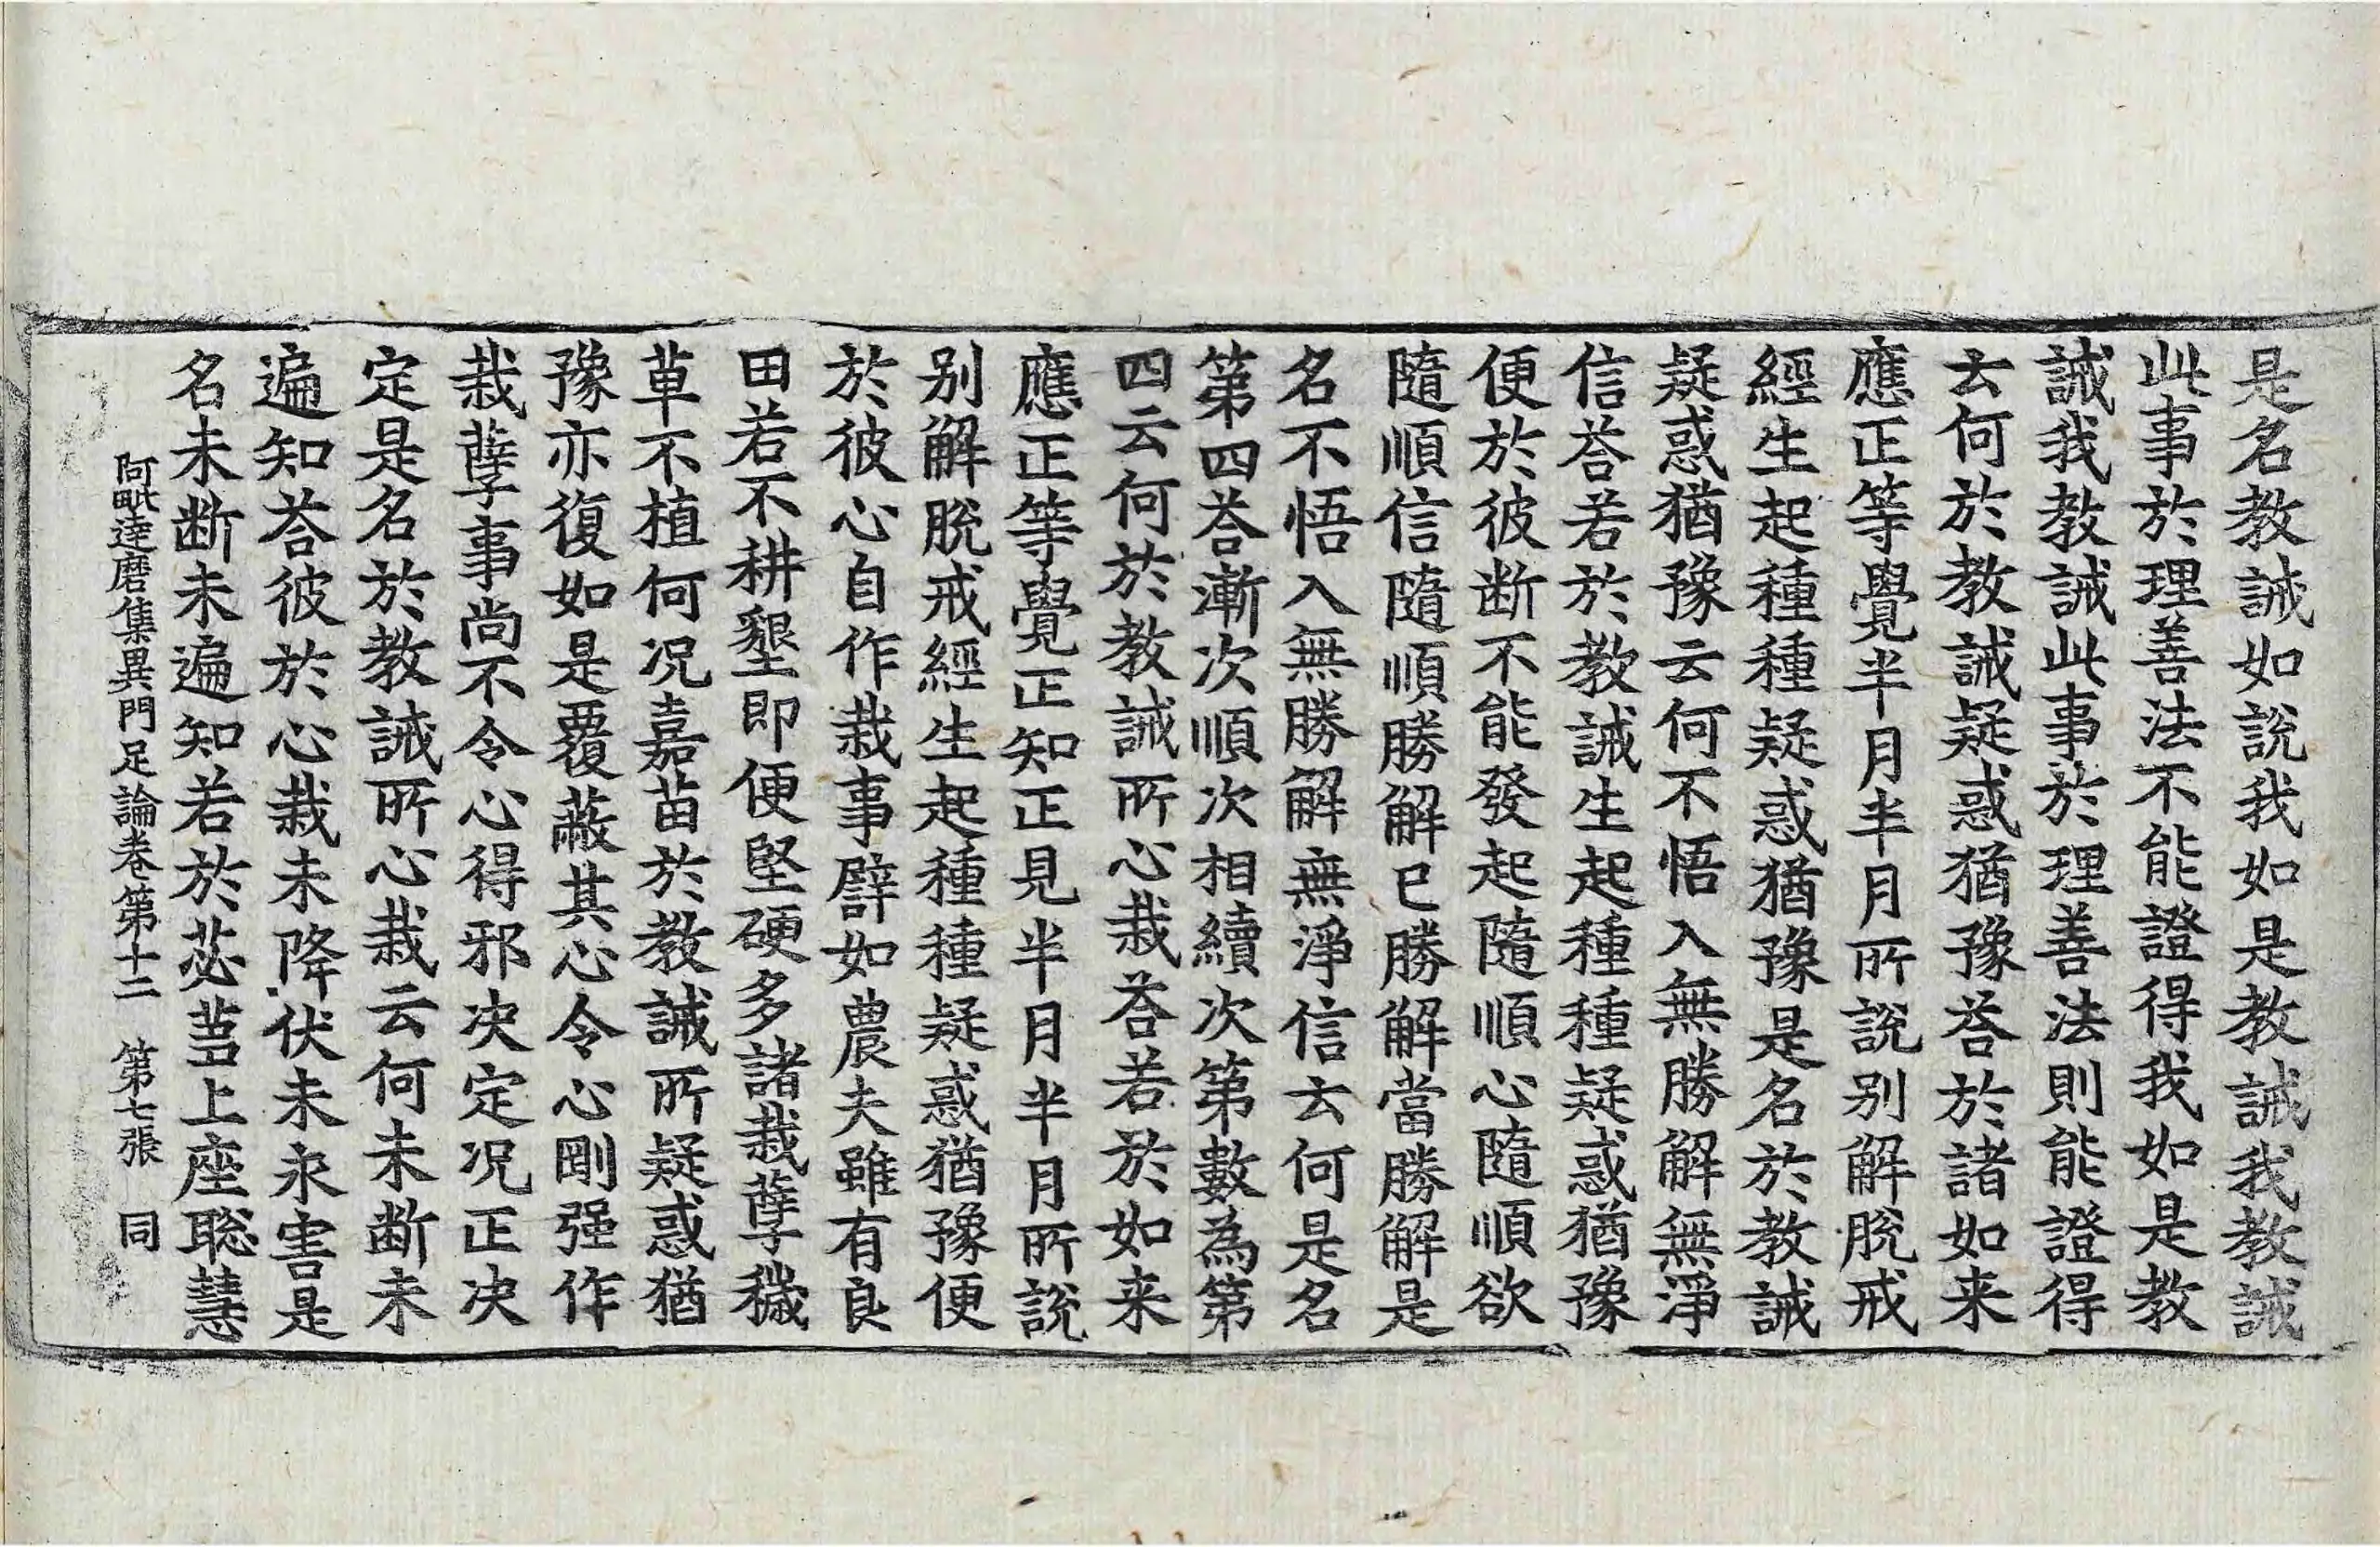 是名教誡如說我如是教誡我教誡
此事於理善法不能證得我如是教
誡我教誡此事於理善法則能證得
云何於教誡疑惑猶豫荅於諸如来
應正等覺半月半月所說别解脫戒
經生起種種疑惑猶豫是名於教誡
疑惑猶豫云何不悟入無勝解無淨
信荅若於教誡生起種種疑惑猶豫
便於彼断不能發起隨順心隨順欲
隨順信隨順勝解已勝解當勝解是
名不悟入無勝解無淨信云何是名
第四荅漸次順次相續次第數為第
四云何於教誡所心栽荅若於如来
應正等覺正知正見半月半月所說
别解脫戒經生起種種疑惑猶豫便
於彼心自作栽事譬如農夫雖有良
田若不耕墾即便堅硬多諸栽孽穢
草不植何况嘉苗於教誡所疑惑猶
豫亦復如是覆蔽其心令心剛强作
栽孽事尚不令心得邪决定况正决
定是名於教誡所心栽云何未断未
遍知荅彼於心栽未降伏未永害是
名未断未遍知若於苾芻上座聡慧
阿毗達磨集異門足論卷第十二 第七張 同